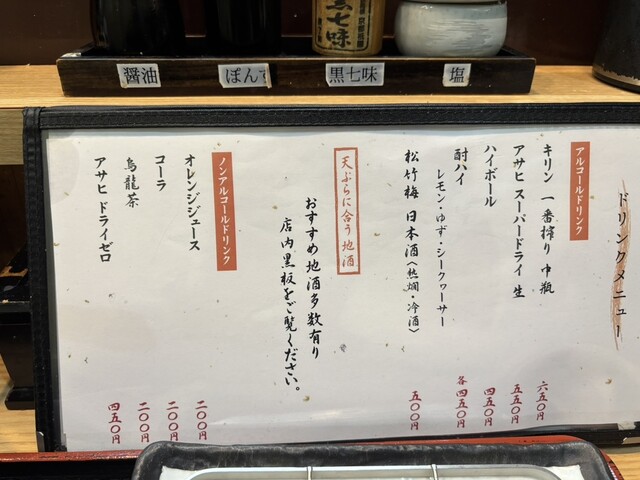 醤油
ぽんず
黒七味
塩
黒七味
ドリンクメニュー
アルコールドリンク
キリン 一番搾り 中瓶 六五〇円
アサヒ スーパードライ 生 五五〇円
ハイボール 四五〇円
酎ハイ 各四五〇円
レモン・ゆず・シークヮーサー
松竹梅 日本酒〈熱燗・冷酒〉 五〇〇円
天ぷらに合う地酒
おすすめ地酒多数有り
店内黒板をご覧ください。
ノンアルコールドリンク
オレンジジュース 二〇〇円
コーラ 二〇〇円
烏龍茶 二〇〇円
アサヒ ドライゼロ 四五〇円